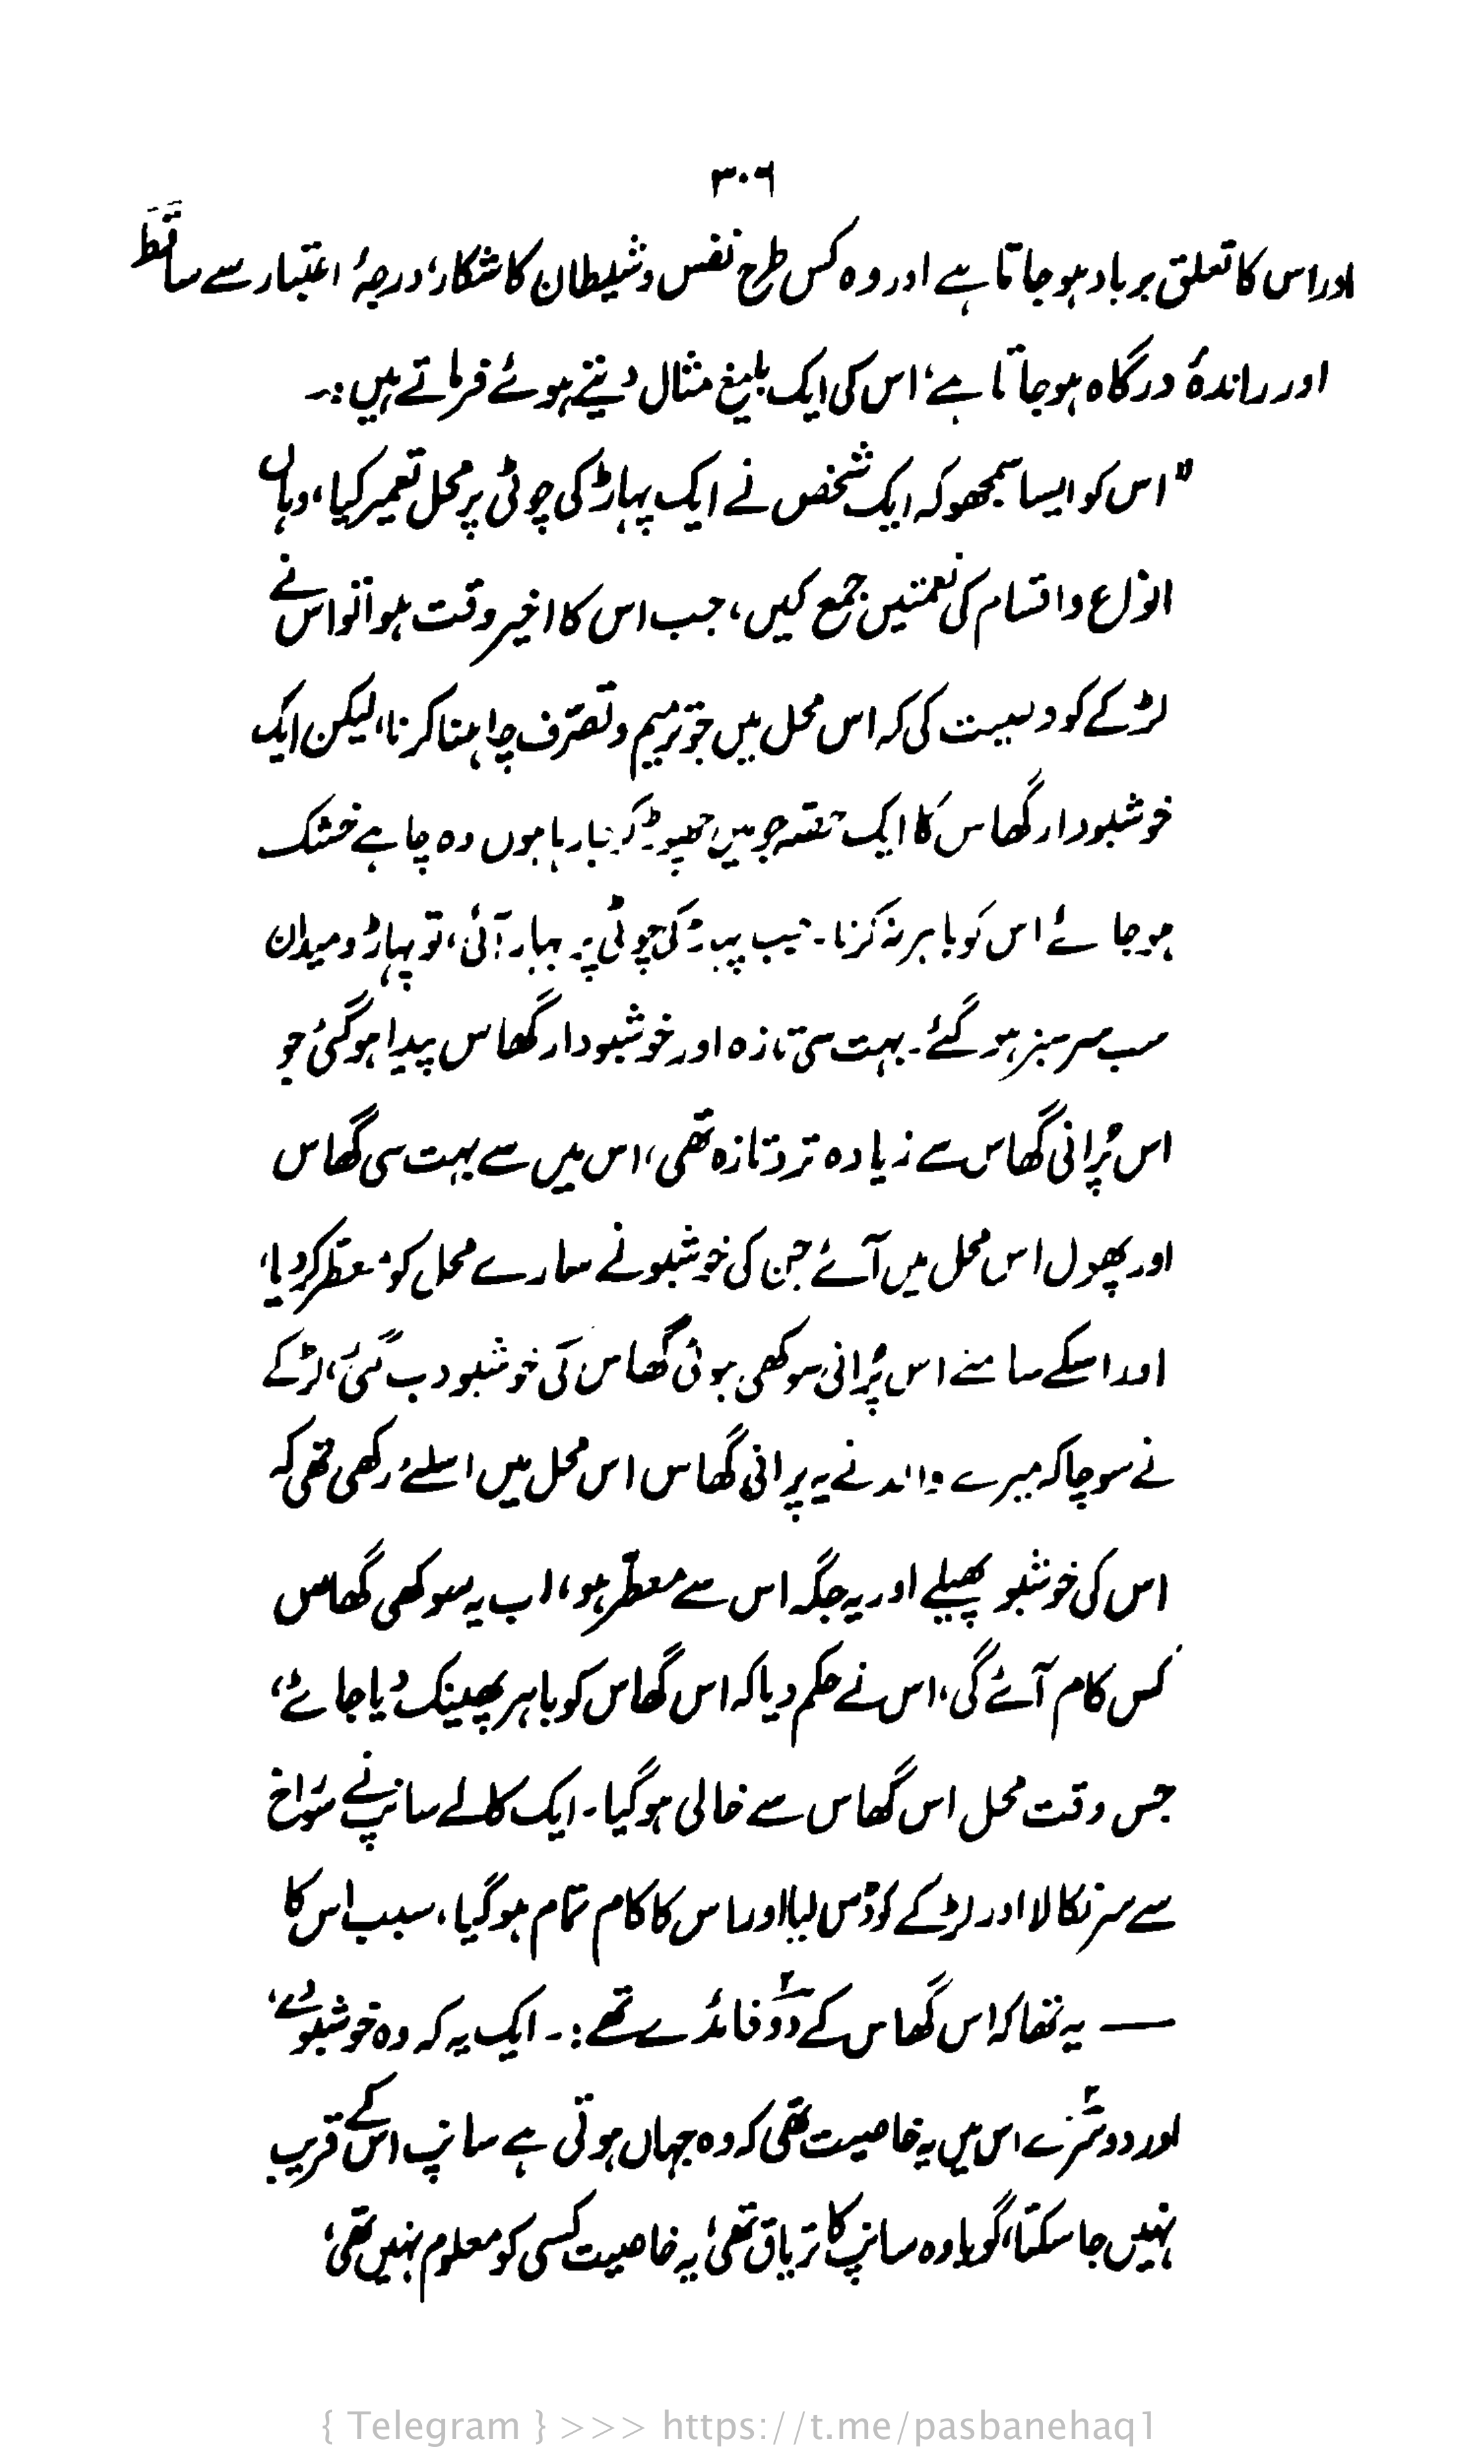 ۳۰۶
اور اس کا تعلق برباد ہو جاتا ہے اور وہ کس طرح نفس و شیطان کا شکار، درجۂ اعتبار سے ساقط
اور راندۂ درگاہ ہو جاتا ہے، اس کی ایک بلیغ مثال دیتے ہوئے فرماتے ہیں:۔
"اس کو ایسا سمجھو کہ ایک شخص نے ایک پہاڑ کی چوٹی پر محل تعمیر کیا، وہاں
انواع و اقسام کی نعمتیں جمع کیں، جب اس کا اخیر وقت ہوا تو اس نے
لڑکے کو وصیت کی کہ اس محل میں جو ترمیم و تصرّف چاہنا کرنا، لیکن ایک
خوشبودار گھاس کا ایک جو میں چھوڑ کر جا رہا ہوں وہ چاہے خشک
ہو جائے اس کو باہر نہ کرنا۔ جب پہاڑ کی چوٹی پر بہار آئی، تو پہاڑ و میدان
سب سرسبز ہو گئے۔ بہت سی تازہ اور خوشبودار گھاس پیدا ہو گئی جو
اس پُرانی گھاس سے زیادہ تر و تازہ تھی، اس میں سے بہت سی گھاس
اور پھول اس محل میں آئے جن کی خوشبو نے سارے محل کو معطر کر دیا،
اور اسکے سامنے اس پُرانی سوکھی ہوئی گھاس کی خوشبو دب گئی، لڑکے
نے سوچا کہ میرے والد نے یہ پرانی گھاس اس محل میں اسلئے رکھی تھی کہ
اس کی خوشبو پھیلے اور یہ جگہ اس سے معطّر ہو، اب یہ سوکھی گھاس
کس کام آئے گی، اس نے حکم دیا کہ اس گھاس کو باہر پھینک دیا جائے،
جس وقت محل اس گھاس سے خالی ہو گیا۔ ایک کالے سانپ نے سُوراخ
سے سر نکالا اور لڑکے کو ڈس لیا اور اس کا کام تمام ہو گیا، سبب اس کا
— یہ تھا کہ اس گھاس کے دو۲ فائدے تھے:۔ ایک یہ کہ وہ خوشبو دے،
اور دوسرے۲ اس میں یہ خاصیت تھی کہ وہ جہاں ہوتی ہے سانپ اس کے قریب
نہیں جا سکتا، گویا وہ سانپ کا تریاق تھی، یہ خاصیت کسی کو معلوم نہیں تھی،
{ Telegram } >>> https://t.me/pasbanehaq1